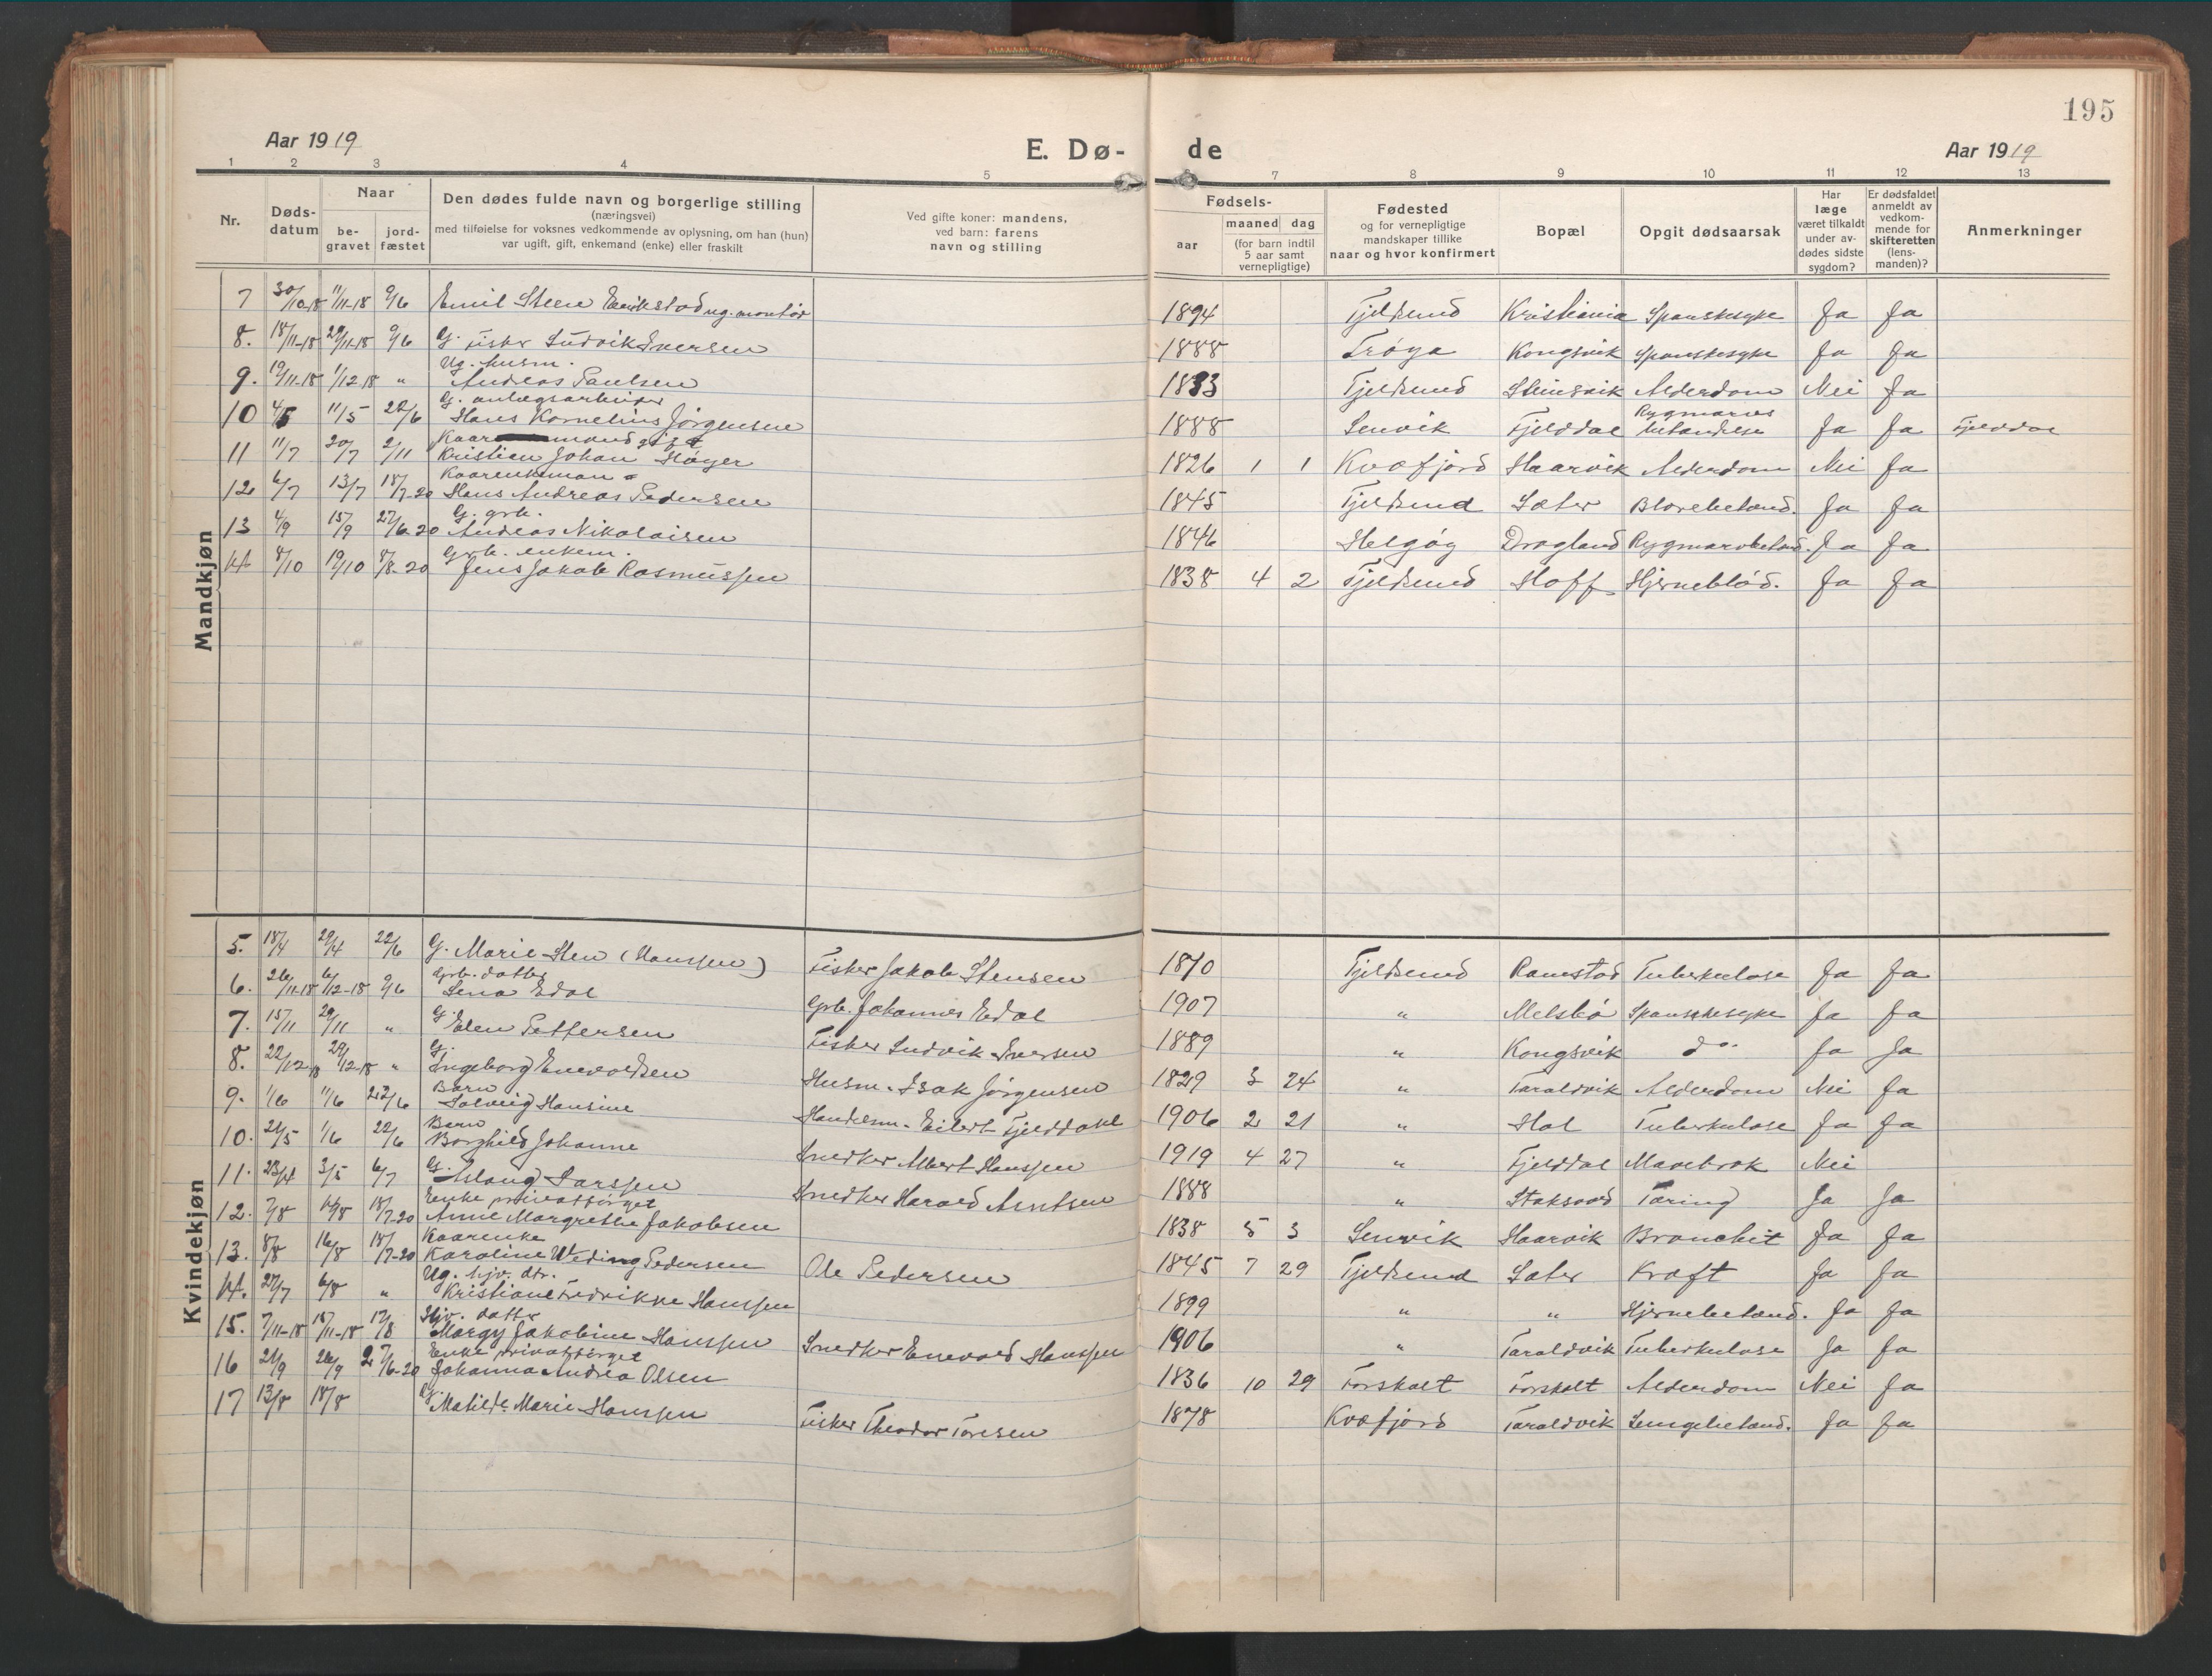 195
Aar 1919
E. Dø-
de
Aar 1919
1 2 3 4 5 7 8 9 10 11 12 13
Nr.
Døds-
datum
Naar
be-
gravet
jord-
fæstet
Den dødes fulde navn og borgerlige stilling
(næringsvei)
med tilføielse for voksnes vedkommende av oplysning, om han (hun)
var ugift, gift, enkemand (enke) eller fraskilt
Ved gifte koner: mandens,
ved barn: farens
navn og stilling
Fødsels-
aar
maaned dag
(for barn indtil
5 aar samt
vernepligtige)
Fødested
og for vernepligtige
mandskaper tillike
naar og hvor konfirmert
Bopæl
Opgit dødsaarsak
Har
læge
været tilkaldt
under av-
dødes sidste
sygdom?
Er dødsfaldet
anmeldt av
vedkom-
mende for
skifteretten
(lens-
manden)?
Anmerkninger
Mandkjøn
7 30/10-18 11/11-18 9/6 Emil Steen Enrikstad ug. montør 1894 Tjeldsund Kristiania Spanskesyke Ja Ja
8. 18/11-18 29/11-18 9/6 G. fisker Ludvik Iversen 1888 Trøya Kongsvik Spanskesyke Ja Ja
Ug. husm.
9. 19/11-18 1/12-18 " Andreas Paulsen 1833 Tjeldsund Steinsvik Alderdom Nei Ja
G. anlægsarbeider
10 4/5 11/5 22/6 Hans Kornelius Jørgensen 1888 Lenvik Fjelddal Rygmarvs betændelse Ja Ja Fjelddal
Kaarmand gift
11 11/7 20/7 2/11 Kristian Johan Høyer 1826 1 1 Kvæfjord Haarvik Alderdom Nei Ja
Kaarenkeman
12 6/7 13/7 18/7-20 Hans Andreas Pedersen 1845 Tjeldsund Sæter Blærebetænd. Ja Ja
G. grb.
13 4/9 15/9 27/6-20 Andreas Nikolaisen 1846 Helgøy Dragland Rygmarvbetænd. Ja Ja
Grb. enkem.
14 8/10 19/10 8/8-20 Jens Jakob Rasmussen 1838 4 2 Tjeldsund Hoff Hjerneblød. Ja Ja
Kvindekjøn
5. 18/4 29/4 22/6 G. Marie Sten (Hanssen) Fisker Jakob Stensen 1870 Tjeldsund Ramstad Tuberkulose Ja Ja
Grb. datter
6. 26/11-18 6/12-18 9/6 Lena Edal Grb. Johannes Edal 1907 " Melsbø Spanskesyke Ja Ja
7. 15/11 29/11 " G. Elen Pettersen Fisker Ludvik Iversen 1889 " Kongsvik do. Ja Ja
G.
8. 22/12 18 29/12-18 " Ingeborg Enevoldsen Husm. Isak Jørgensen 1829 3 24 " Taraldvik Alderdom Nei Ja
Barn
9. 1/6 11/6 22/6 Solveig Hansine Handelsm. Eilert Fjelddahl 1906 2 21 " Hol Tuberkulose Ja Ja
Barn
10. 21/5 1/6 22/6 Borghild Johanne Snedker Albert Hanssen 1919 4 27 " Fjelddal Mavebrok Nei
G.
11. 23/4 3/5 6/7 Aslaug Larssen Snedker Harald Arntsen 1888 " Staksvold Tæring Ja Ja
Enke privatforsørget
12. 7/8 16/8 18/7-20 Anne Margrethe Jakobsen 1838 5 3 Lenvik Haarvik Bronchit Ja Ja
Kaarenke
13. 8/8 16/8 18/7-20 Karoline Weding Pedersen Ole Pedersen 1845 7 29 Tjeldsund Sæter Kræft Ja Ja
Ug. hjv. dtr.
14. 27/7 6/8 " Kristiane Fredrikke Hanssen 1899 " " Hjernebetænd. Ja Ja
Hjv. datter
15. 7/11-18 18/11-18 17/8 Margy Jakobine Hanssen Snedker Enevold Hanssen 1906 " Taraldvik Tuberkulose Ja Ja
Enke privatforsørget
16 21/9 26/9 27/6-20 Johanna Andrea Olsen 1836 10 29 Forshalt Forshalt Alderdom Nei Ja
17 13/8 18/8 Ug. Matilde Marie Hanssen Fisker Theodor Toresen 1878 Kvæfjord Taraldvik Lungebetænd. Ja Ja